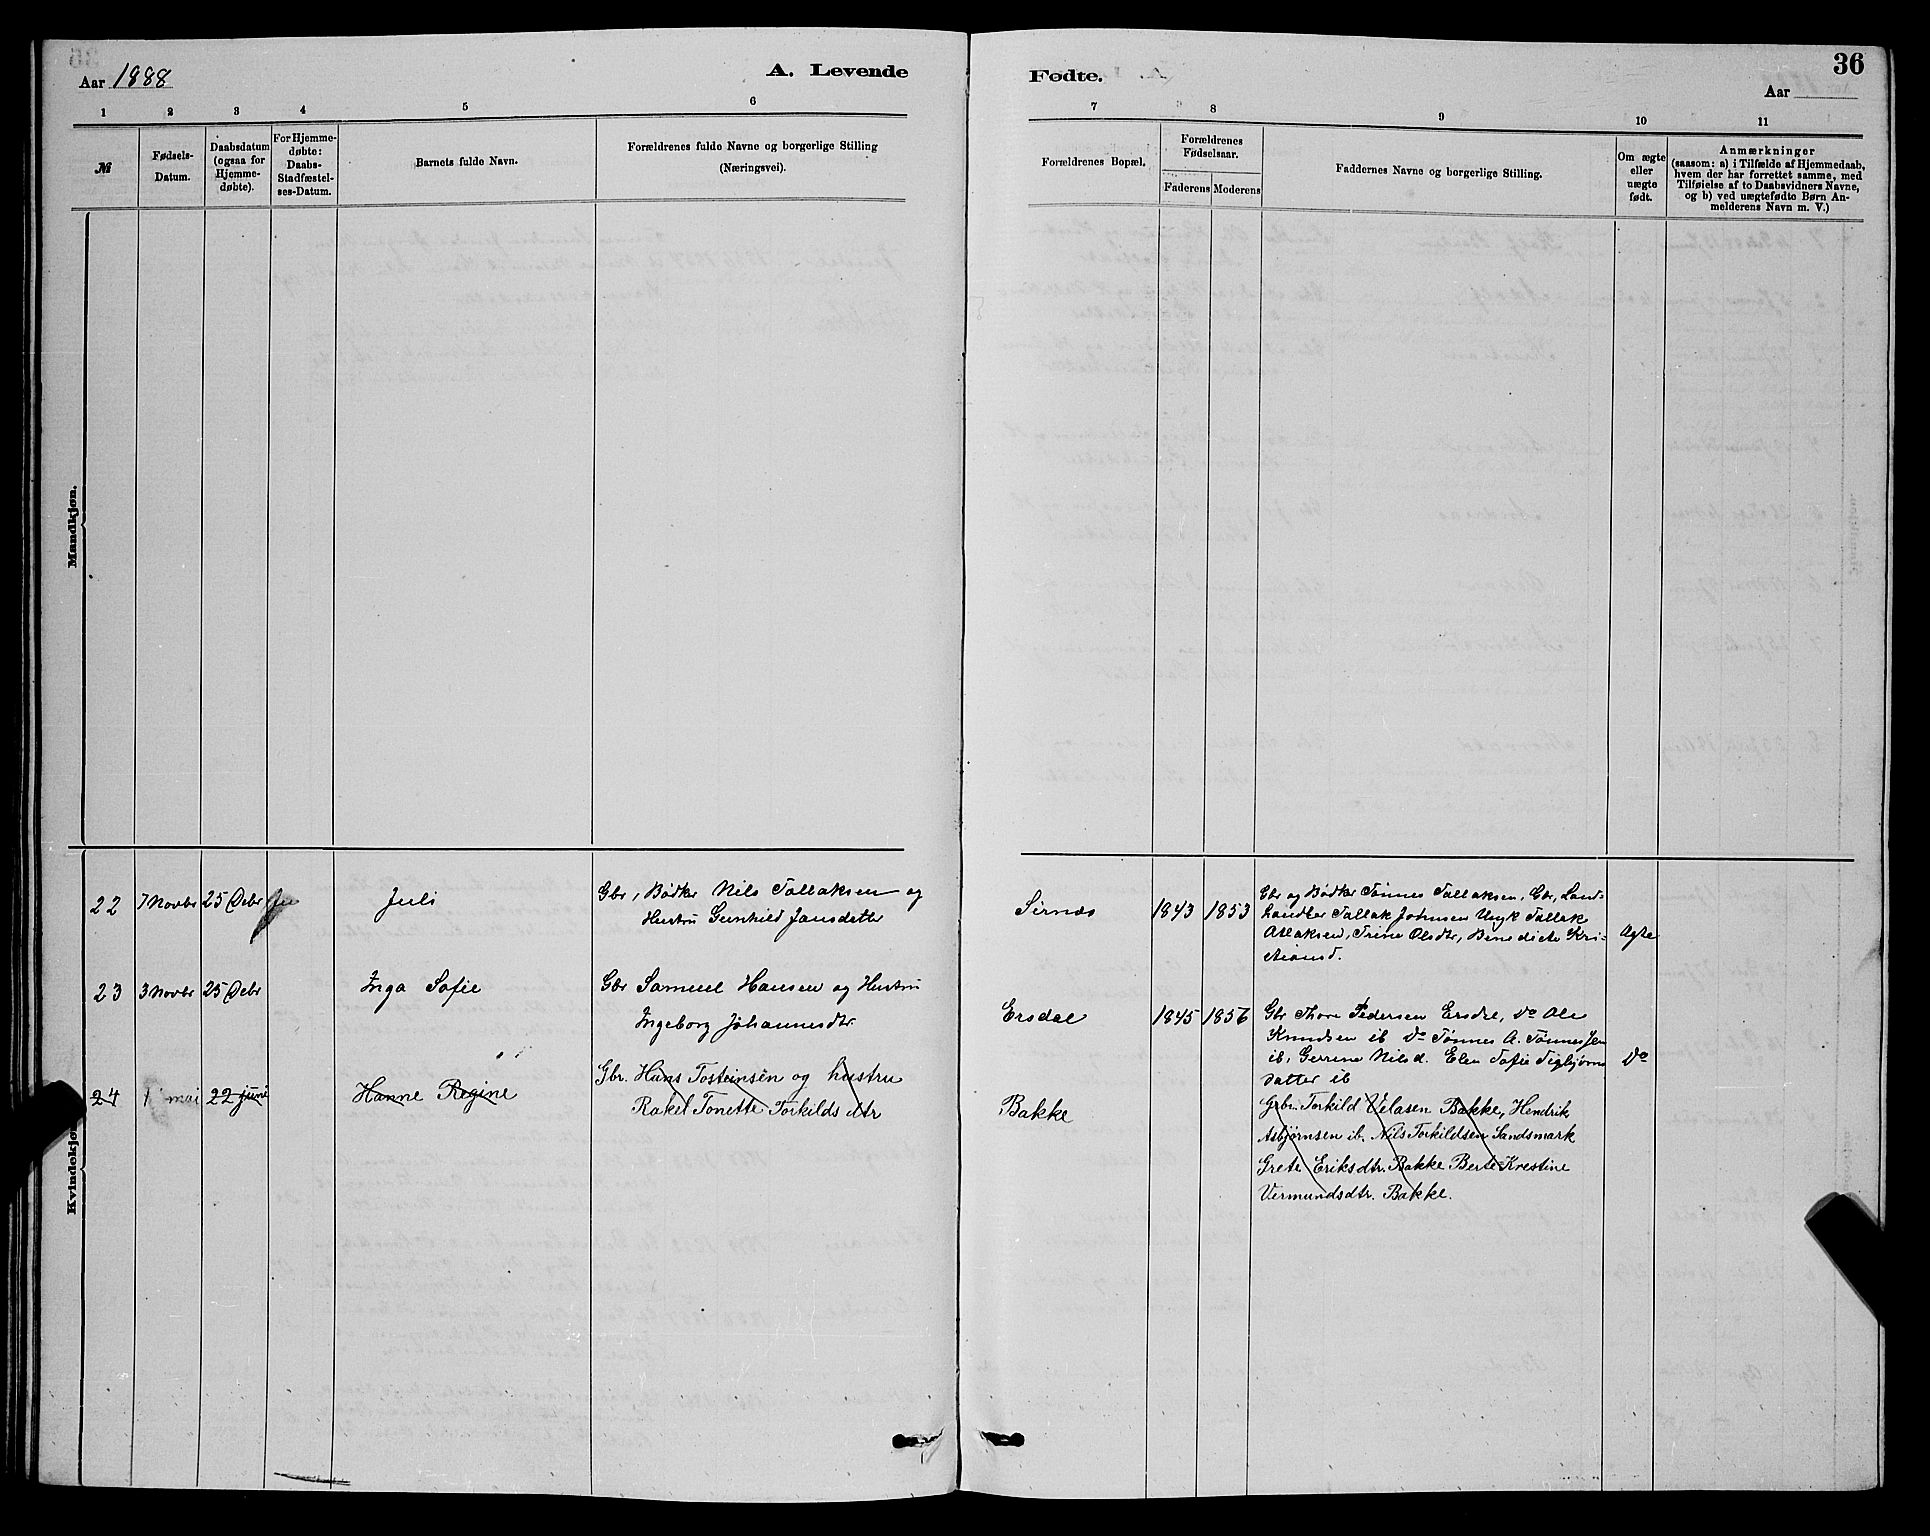 Aar 1888
A. Levende
Fødte.
36
Aar
1 2 3 4 5 6 7 8 9 10 11
№
Fødsels-
Datum.
Daabsdatum
(ogsaa for
Hjemme-
døbte).
For Hjemme-
døbte:
Daabs-
Stadfæstel-
ses-Datum.
Barnets fulde Navn.
Forældrenes fulde Navne og borgerlige Stilling
(Næringsvei).
Forældrenes Bopæl.
Forældrenes
Fødselsaar.
Faderens Moderens
Faddernes Navne og borgerlige Stilling.
Om ægte
eller
uægte
født.
Anmærkninger
(saasom: a) i Tilfælde af Hjemmedaab,
hvem der har forrettet samme, med
Tilføielse af to Daabsvidners Navne,
og b) ved uægtefødte Børn An-
melderens Navn m. V.)
Mandkjøn.
Kvindekjøn.
22 7 Novbr 25 Debr Juli
Gbr, Bødker Nils Tallaksen og
Hustru Gunhild Jansdatter
Sirnes 1843 1853
Gbr og Bødker Tönnes Tallaksen, Gbr, Land-
handler Tallak Johnsen Ungk Tallak
Atlaksen, Trine Olsdtr, Benedicte Kri-
stiansd.
Ægte
23 3 Novbr 25 Debr Inga Sofie
Gbr Samuel Hansen og Hustru
Ingeborg Johannesdtr.
Ersdal 1845 1856
Gbr Thore Pedersen Ersdal, Do Ole
Knudsen ib Do Tønnes A. Tønnesen
ib, Gerrine Nilsd. Elen Sofie Sigbjørns
datter ib
Do
24 1 mai 22 juni Hanne Regine
Gbr. Hans Tosteinsen og hustru
Rakel Tonette Torkilds dtr
Bakke
Gbr. Torkild Velasen Bakke, Hendrik
Asbjørnsen ib. Nils Torkildsen Sandsmark
Grete Eriksdtr. Bakke Berte Krestine
Vermundsdtr. Bakke.